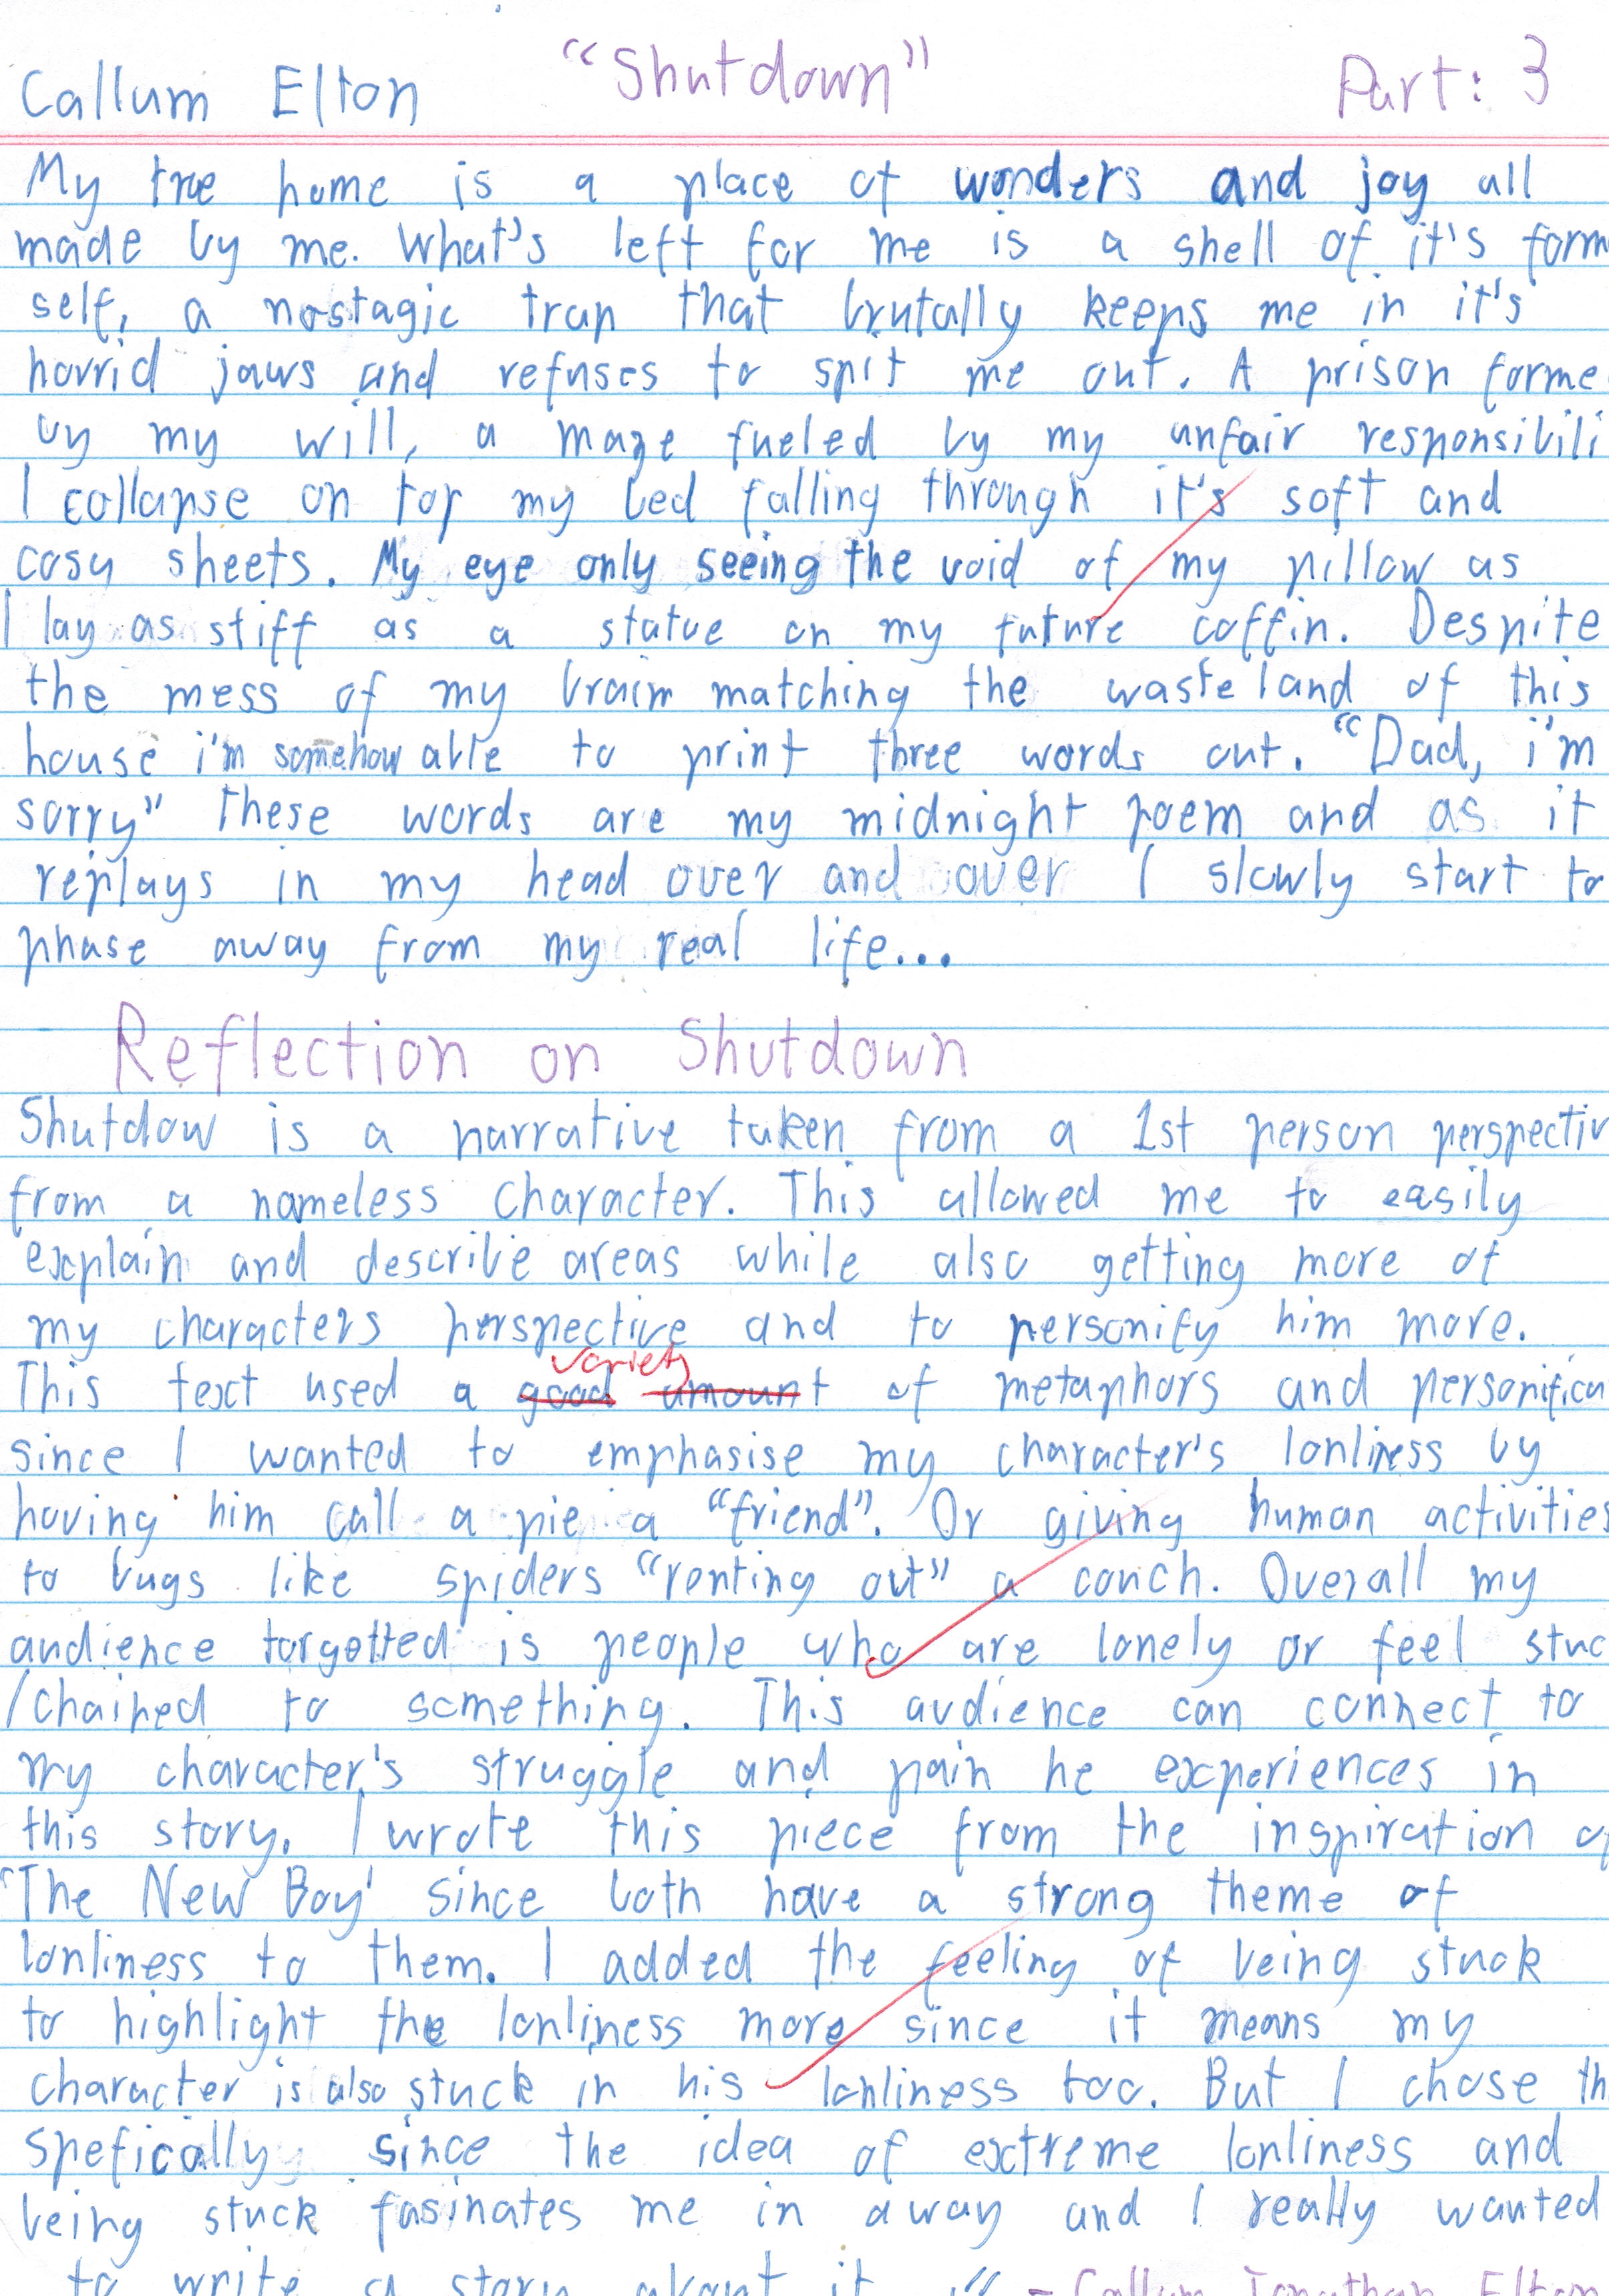 Callum Elton "Shutdown" Part: 3
My true home is a place of wonders and joy all
made by me. What's left for me is a shell of it's form
self, a nostagic trap that brutally keeps me in it's
horrid jaws and refuses to spit me out. A prison forme
by my will, a maze fueled by my unfair responsibili
I collapse on top my bed falling through it's soft and
cosy sheets. My eye only seeing the void of my pillow as
I lay as stiff as a statue on my future coffin. Despite
the mess of my brain matching the waste land of this
house i'm somehow able to print three words out. "Dad, i'm
sorry" These words are my midnight poem and as it
replays in my head over and over I slowly start to
phase away from my real life...
Reflection on Shutdown
Shutdow is a narrative taken from a 1st person perspectiv
from a nameless character. This allowed me to easily
explain and describe areas while also getting more of
my characters perspective and to personify him more.
variety
This text used a good amount of metaphors and personifica
since I wanted to emphasise my character's lonliness by
having him call a pie a "friend". Or giving human activities
to bugs like spiders "renting out" a couch. Overall my
audience targetted is people who are lonely or feel stuc
/chained to something. This audience can connect to
my character's struggle and pain he experiences in
this story. I wrote this piece from the inspiration of
'The New Boy' since both have a strong theme of
lonliness to them. I added the feeling of being stuck
to highlight the lonliness more since it means my
character is also stuck in his lonliness too. But I chose th
spefically since the idea of extreme lonliness and
being stuck fasinates me in a way and I really wanted
to write a story about it. - Callum Jonathan Elton